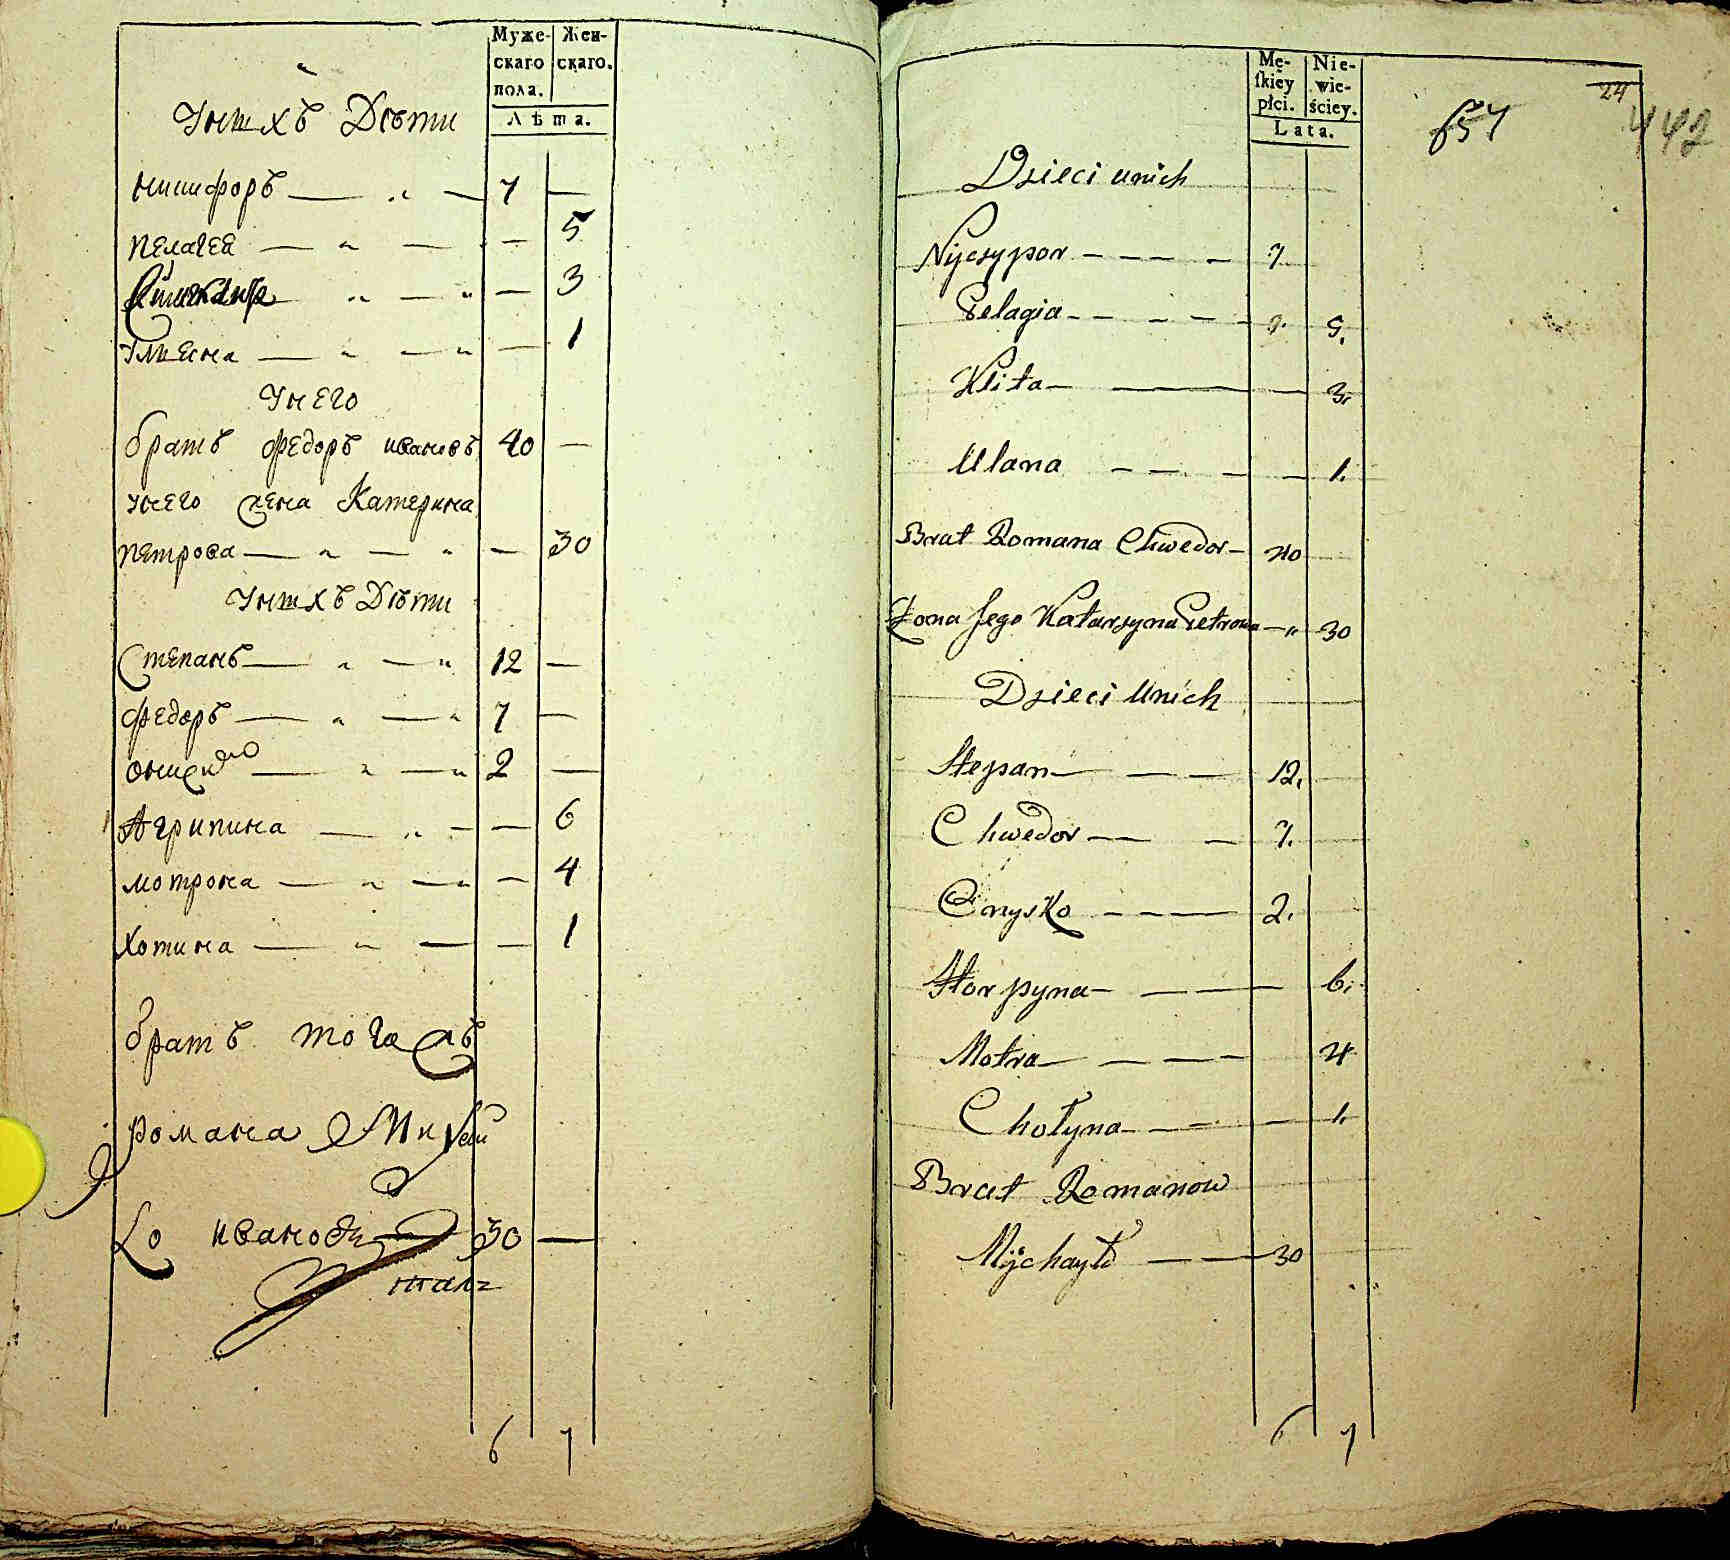 Муже- Жен-
скаго скаго.
пола.
Лѣта.
Унихъ Дѣти
Никифоръ 7 —
пелагея — 5
— 3
Улиена — 1
Унего
братъ Федоръ ивановъ 40 —
унего жена Катерина
петрова — 30
Унихъ Дѣти
Степанъ 12 —
Федоръ 7 —
ониско 2 —
Агрипина — 6
мотрона — 4
Хотина — 1
братъ тогожъ
романа Михай
Ло иванов 30 —
6 7
Mę- Nie-
ſkiey wie-
płci. ściey.
Lata.
24
442
Dzieci unich
Nyczypor 7
Pelagia 5.
Klita 3.
Ulana 1.
Brat Romana Chwedor 40
Żona Jego Katarzyna Petrowa 30
Dzieci Unich
Stepan 12.
Chwedor 7.
Onysko 2.
Horpyna 6.
Motra 4
Chotyna 1.
Brat Romanow
Mychayło 30
6 7